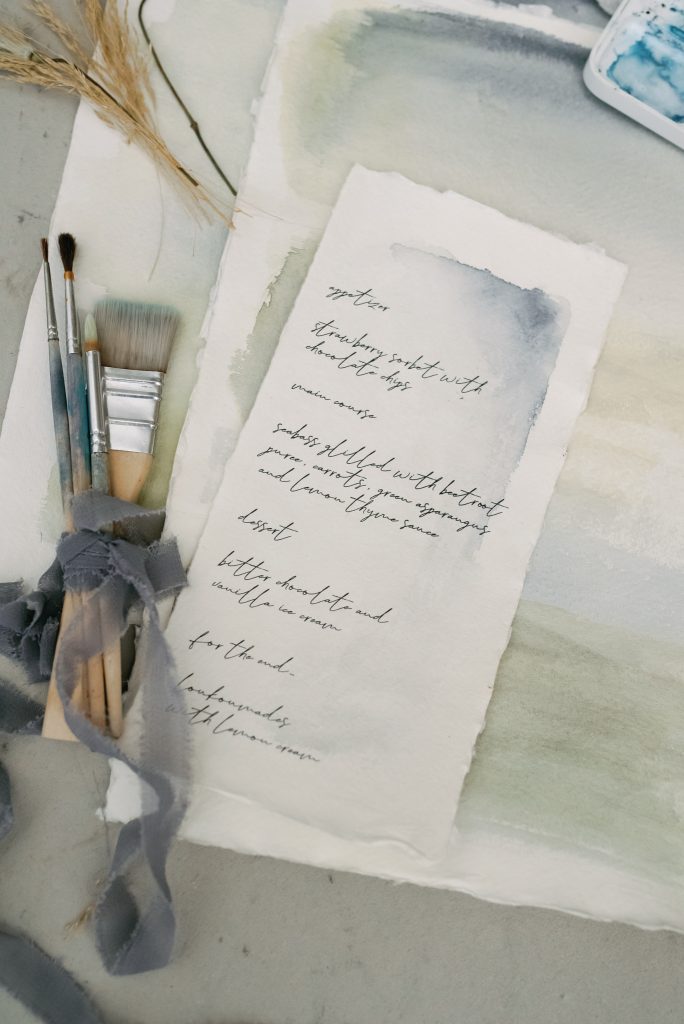 appetizer
strawberry sorbet with
chocolate chips
main course
seabass glilled with beetroot
puree, carrots, green asparangus
and lemon thyme sauce
dessert
bitter chocolate and
vanilla ice cream
for the end..
loukoumades
with lemon cream